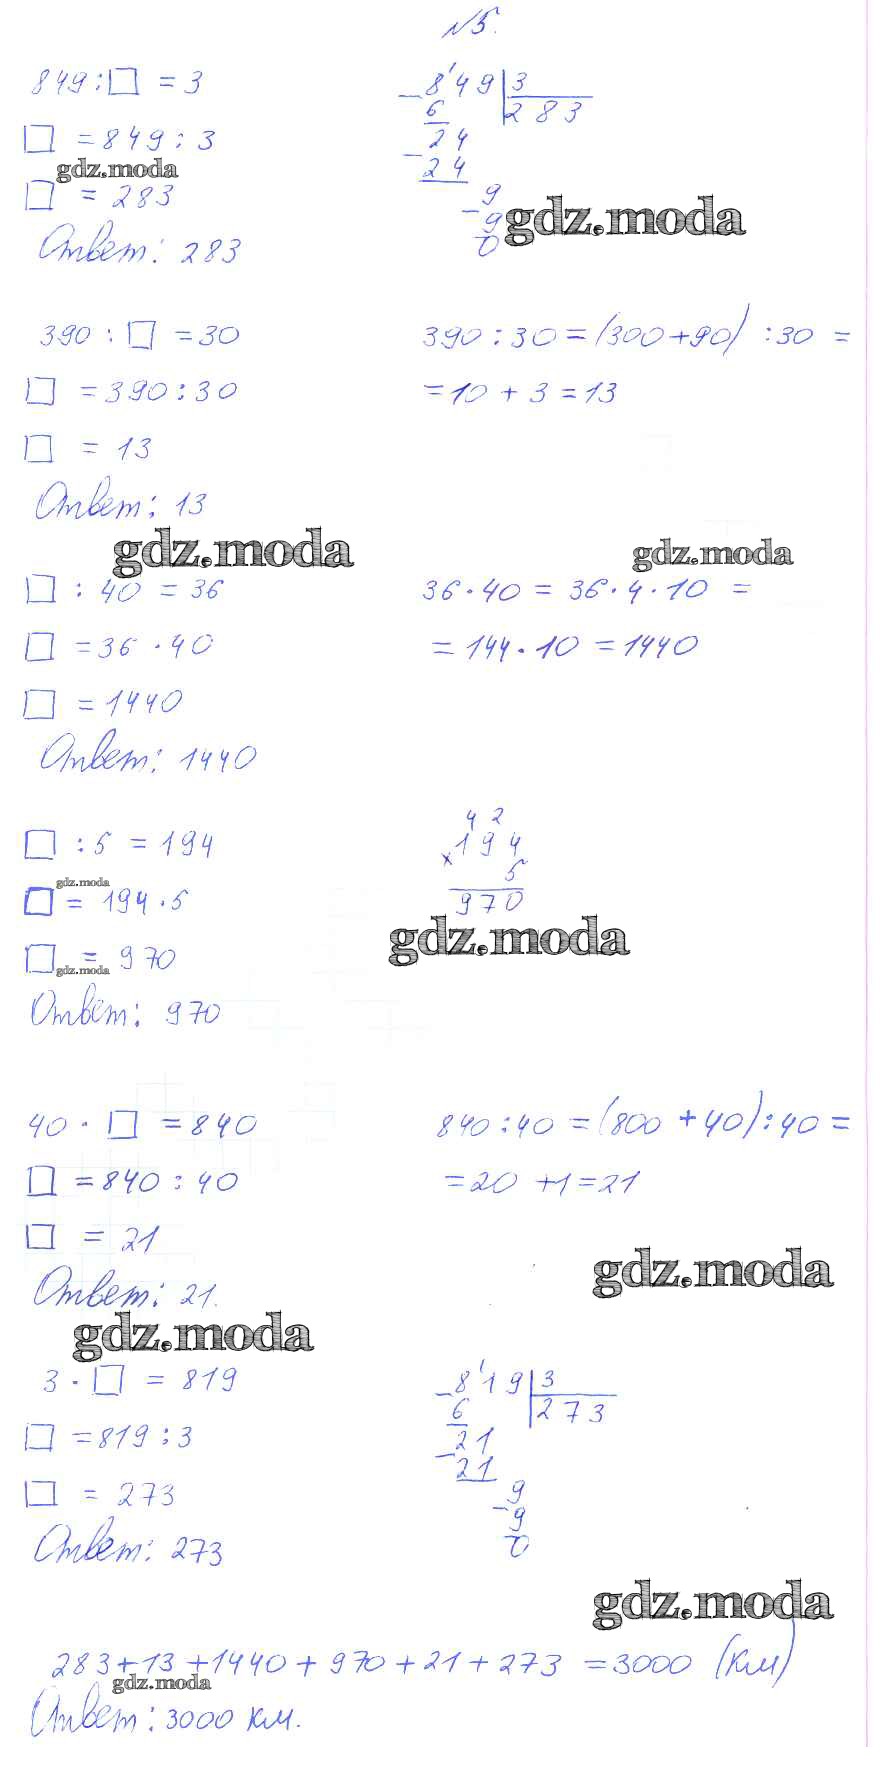 №5.
849 : □ = 3
□ = 849 : 3
gdz.moda
□ = 283
Ответ: 283
- 849 | 3
6 | 283
24
- 24
9
- 9
0
gdz.moda
390 : □ = 30
□ = 390 : 30
□ = 13
Ответ: 13
390 : 30 = (300 + 90) : 30 =
= 10 + 3 = 13
gdz.moda
gdz.moda
□ : 40 = 36
□ = 36 · 40
□ = 1440
Ответ: 1440
36 · 40 = 36 · 4 · 10 =
= 144 · 10 = 1440
□ : 5 = 194
gdz.moda
□ = 194 · 5
□ = 970
gdz.moda
Ответ: 970
4 2
× 194
5
970
gdz.moda
40 · □ = 840
□ = 840 : 40
□ = 21
Ответ: 21.
840 : 40 = (800 + 40) : 40 =
= 20 + 1 = 21
gdz.moda
gdz.moda
3 · □ = 819
□ = 819 : 3
□ = 273
Ответ: 273
- 819 | 3
6 | 273
21
- 21
9
- 9
0
gdz.moda
283 + 13 + 1440 + 970 + 21 + 273 = 3000 (км)
gdz.moda
Ответ: 3000 км.